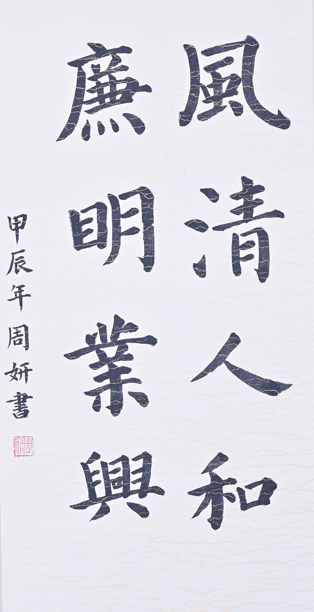 風清人和
廉明業興
甲辰年周妍書